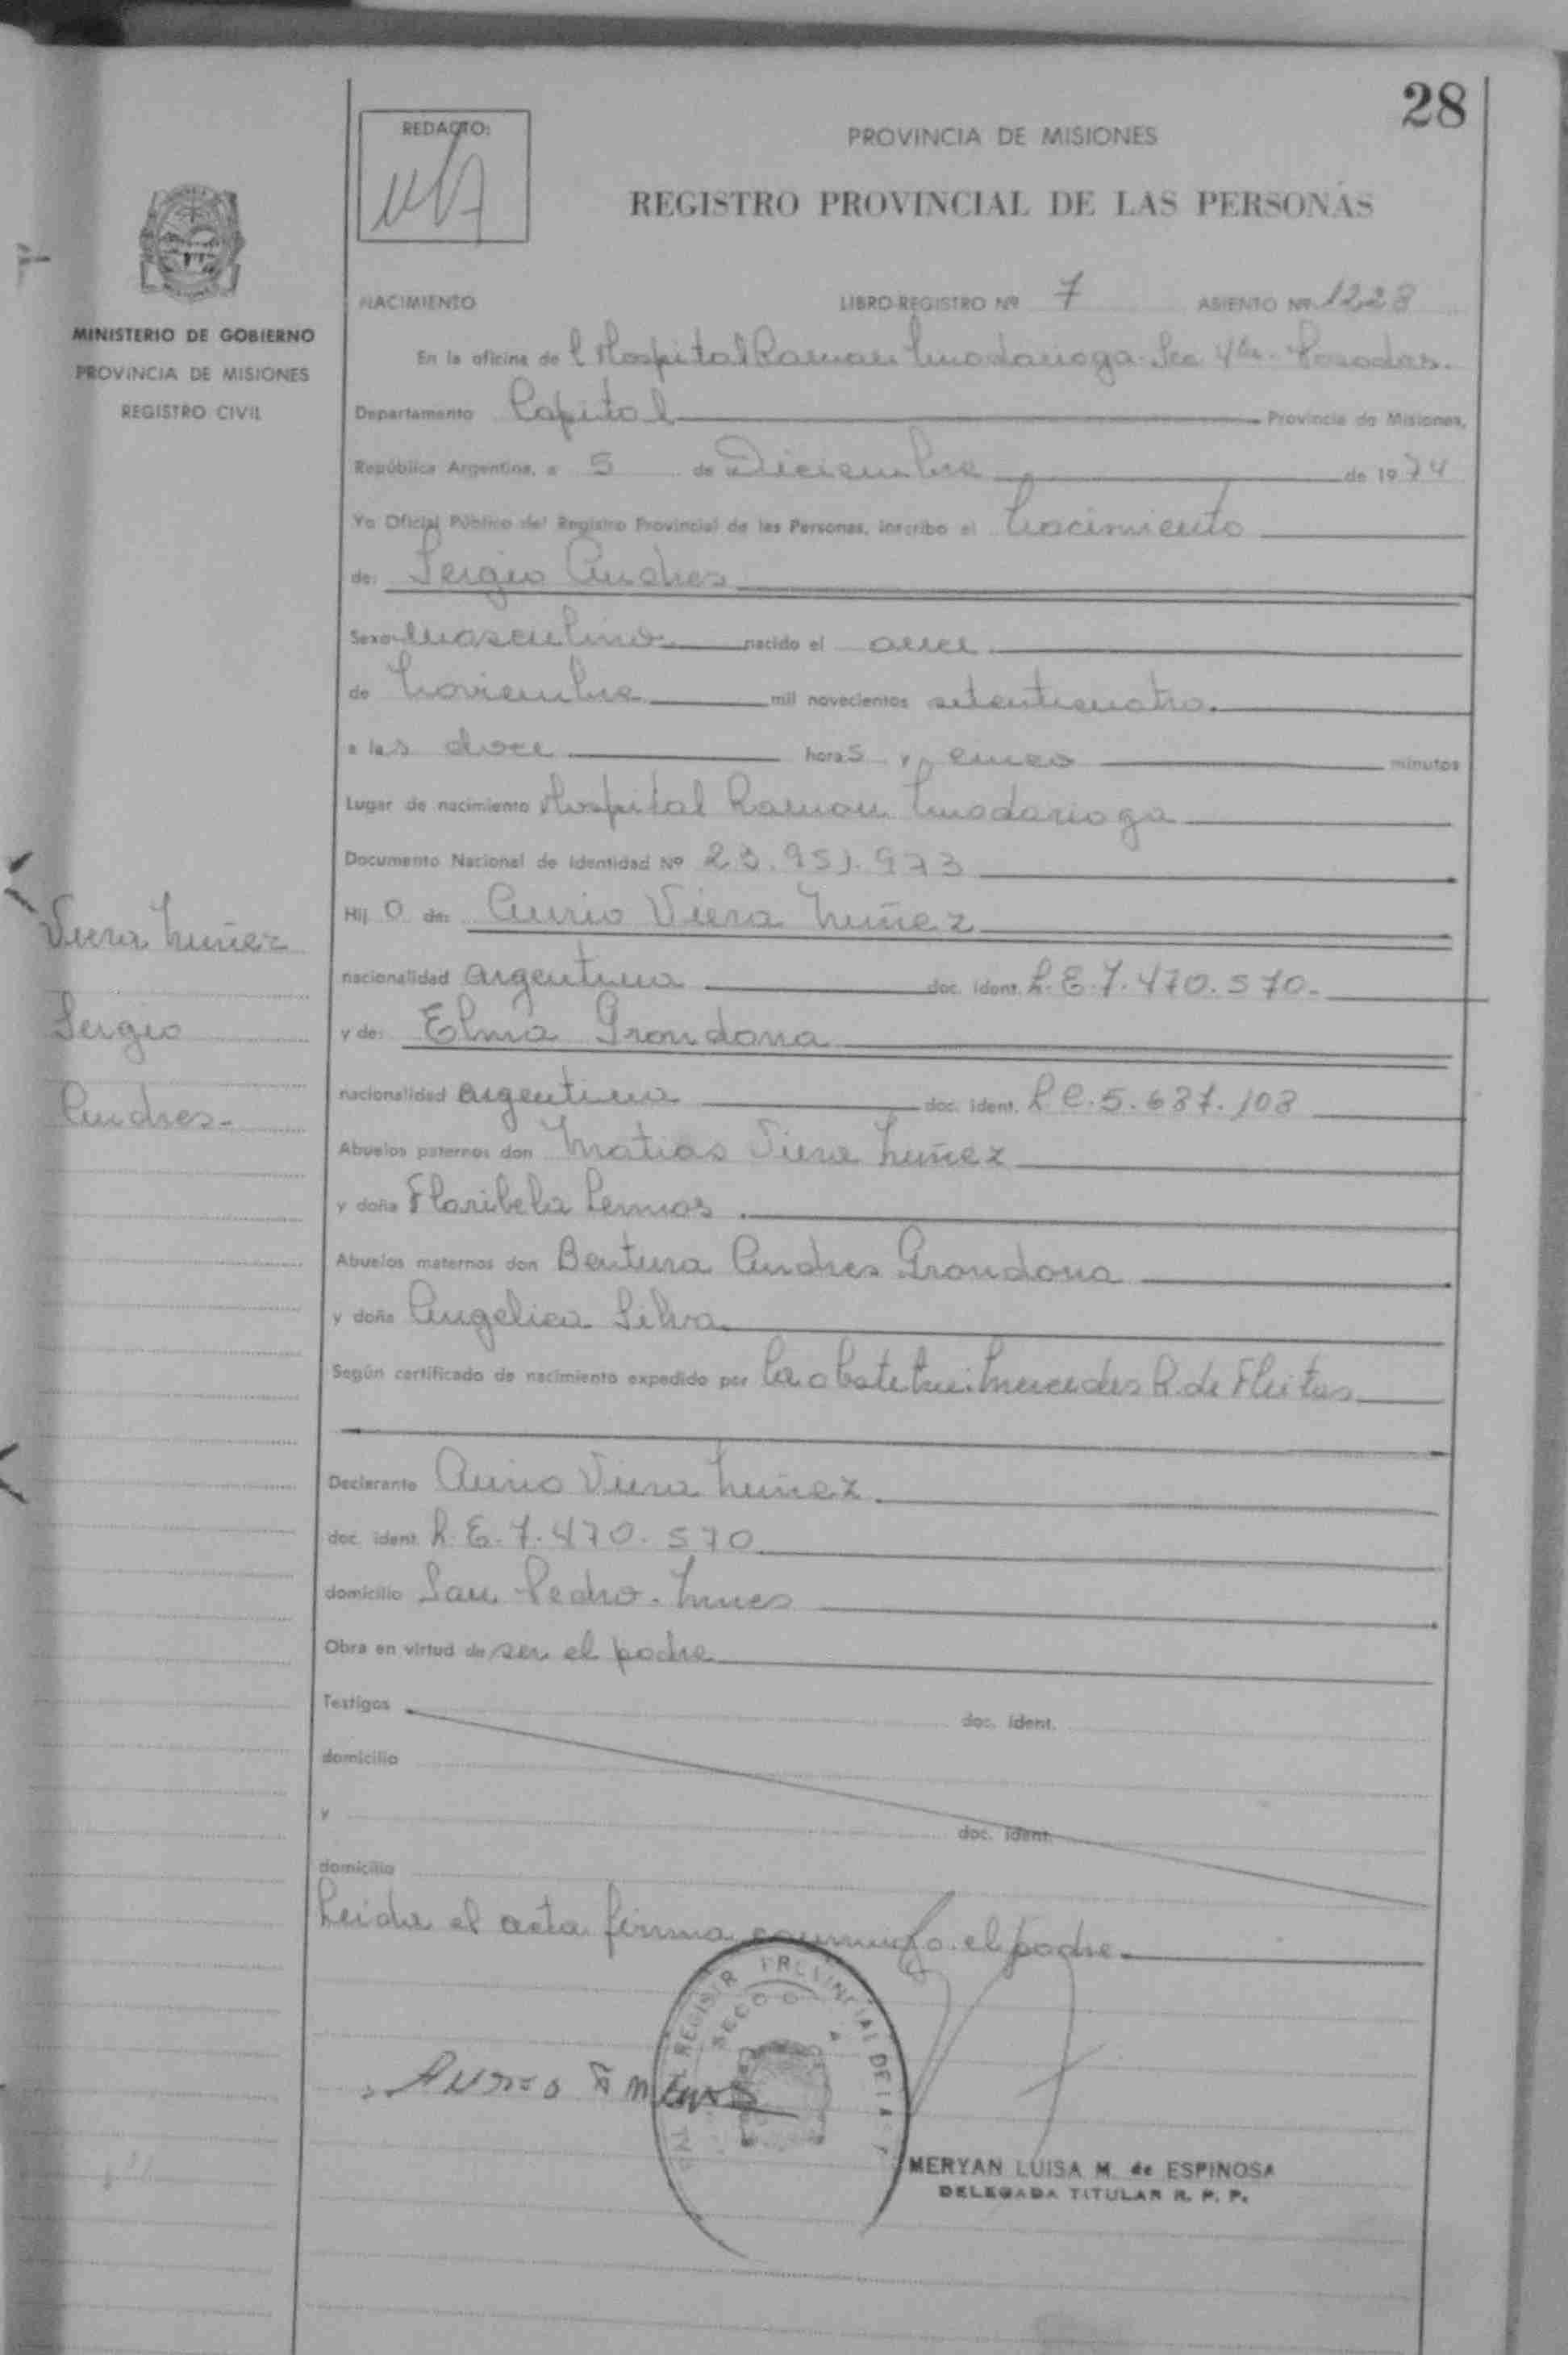 28
REDACTO:
PROVINCIA DE MISIONES
REGISTRO PROVINCIAL DE LAS PERSONAS
MINISTERIO DE GOBIERNO
PROVINCIA DE MISIONES
REGISTRO CIVIL
NACIMIENTO LIBRO-REGISTRO Nº 7 ASIENTO Nº 1228
En la oficina de l Hospital Ramon Madariaga. Sec 4ta. Posadas.
Departamento Capital Provincia de Misiones,
República Argentina, a 5 de Diciembre de 1974
Yo Oficial Público del Registro Provincial de las Personas, inscribo el Nacimiento
de: Sergio Andres
Sexo masculino nacido el once
de Noviembre mil novecientos setenticuatro.
a las doce horas y cinco minutos
Lugar de nacimiento Hospital Ramon Madariaga
Documento Nacional de Identidad Nº 23.951.973
Hij o de: Aurio Viera Nuñez
nacionalidad argentina doc. ident. L.E.7.470.570.
y de: Elma Grondona
nacionalidad argentina doc. ident. L.C.5.687.108
Abuelos paternos don Matias Viera Nuñez
y doña Floribela Lemos.
Abuelos maternos don Bentura Andres Grondona
y doña Angelica Silva.
Según certificado de nacimiento expedido por La obstetri. Mercedes R. de Fleitas
Declarante Aurio Viera Nuñez.
doc. ident. L.E.7.470.570
domicilio San Pedro. Mnes
Obra en virtud de ser el padre
Testigos doc. ident.
domicilio
y doc. ident.
domicilio
Leida el acta firma conmigo el padre.
Viera Nuñez
Sergio
Andres.
MERYAN LUISA M. de ESPINOSA
DELEGADA TITULAR R. P. P.